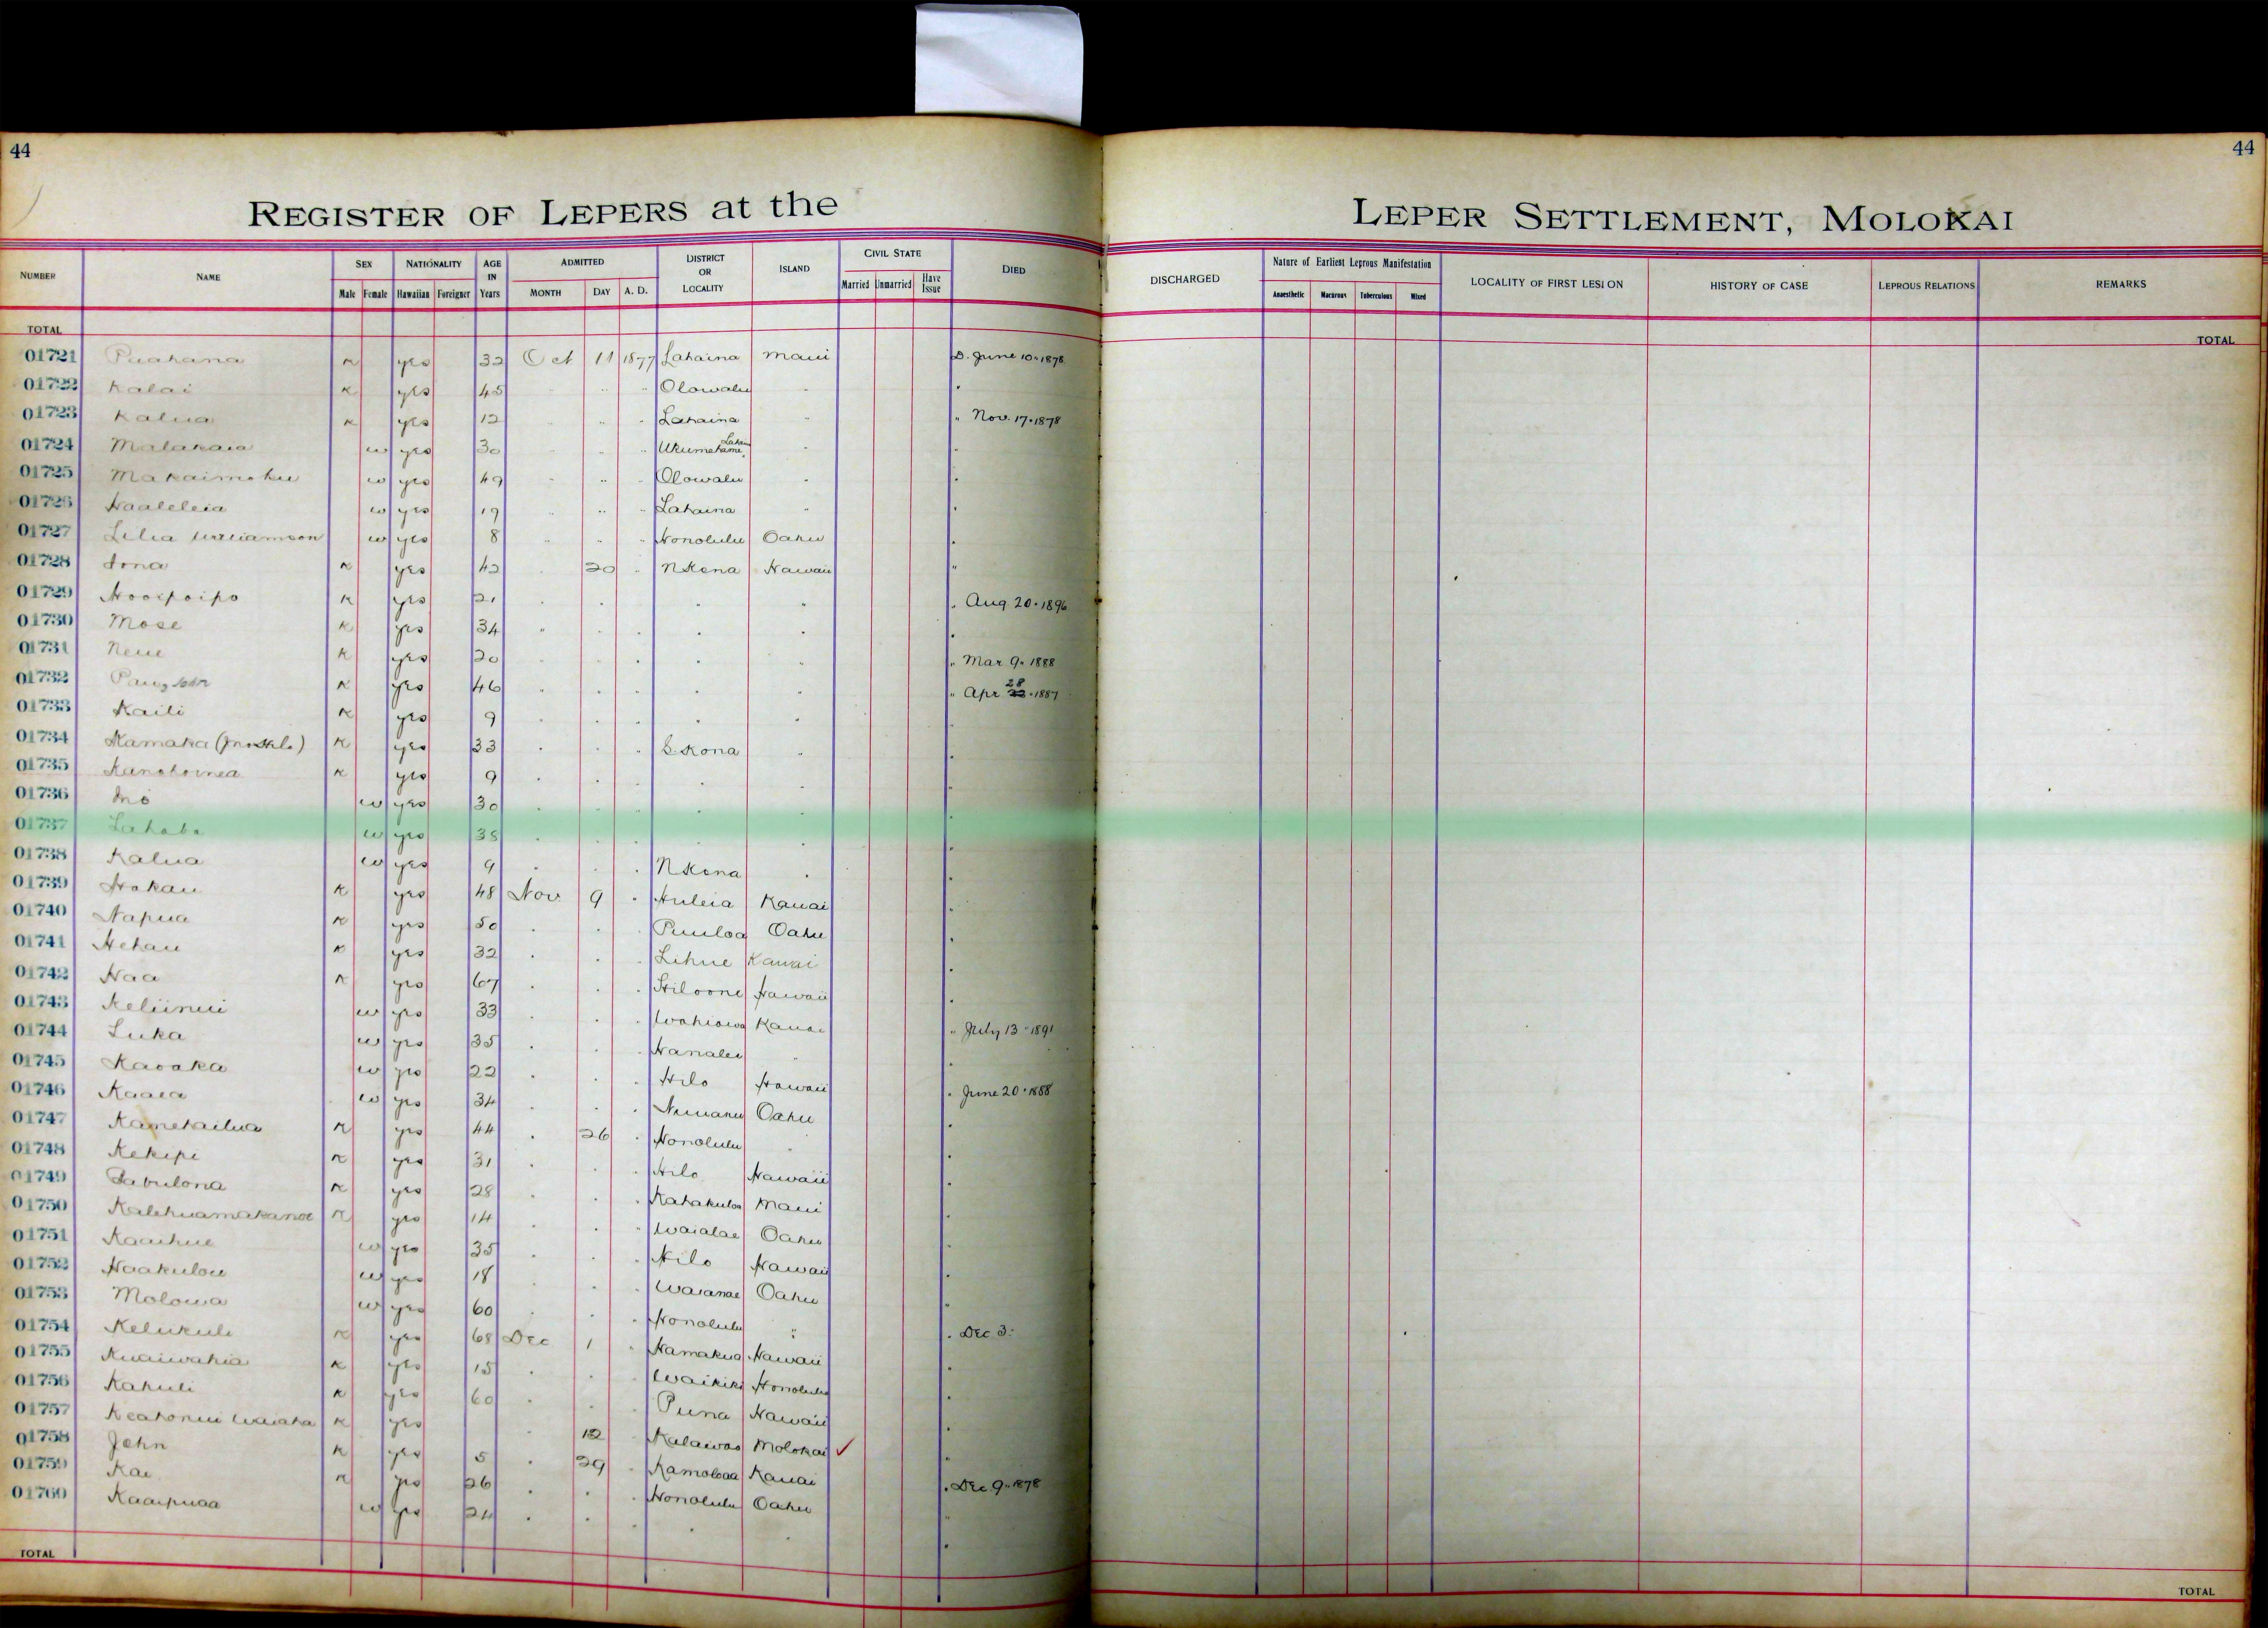 44
44
REGISTER OF LEPERS at the LEPER SETTLEMENT, MOLOKAI
NUMBER NAME SEX NATIONALITY AGE IN Years ADMITTED DISTRICT OR LOCALITY ISLAND CIVIL STATE DIED DISCHARGED Nature of Earliest Leprous Manifestation LOCALITY OF FIRST LESION HISTORY OF CASE LEPROUS RELATIONS REMARKS
Male Female Hawaiian Foreigner MONTH DAY A. D. Married Unmarried Have Issue Anaesthetic Macurous Tuberculous Mixed
TOTAL TOTAL
01721 Puahana K yes 32 Oct 11 1877 Lahaina Maui D. June 10 " 1878
01722 Kalai K yes 45 " " " Olowalu " "
01723 Kalua K yes 12 " " " Lahaina " " Nov. 17 " 1878
01724 Malakaia w yes 30 " " " Ukumehame " "
01725 Makaimoku w yes 49 " " " Olowalu " "
01726 Haaleleia w yes 19 " " " Lahaina " "
01727 Lilia Williamson w yes 8 " " " Honolulu Oahu "
01728 Iona K yes 42 " 20 " N Kona Hawaii "
01729 Hooipoipo K yes 21 " " " " " " Aug. 20 " 1896
01730 Mose K yes 34 " " " " " "
01731 Neue K yes 20 " " " " " " Mar. 9 " 1888
01732 John K yes 46 " " " " " " Apr 28 " 1887
01733 Kaili K yes 9 " " " " " "
01734 Kamaka K yes 33 " " " S. Kona " "
01735 K yes 9 " " " " " "
01736 w yes 30 " " " " " "
01737 w yes 38 " " " " " "
01738 Kalua w yes 9 " " " N Kona " "
01739 Hokau K yes 48 Nov 9 " Huleia Kauai "
01740 Napua K yes 50 " " " Puuloa Oahu "
01741 Hehau K yes 32 " " " Lihue Kauai "
01742 Naa K yes 67 " " " Hiloone Hawaii "
01743 Keliinui w yes 33 " " " Wahiawa Kauai " July 13 " 1891
01744 Luka w yes 35 " " " Hanalei " "
01745 Kaoaka w yes 22 " " " Hilo Hawaii " June 20 " 1888
01746 Kaaea w yes 34 " " " Nuuanu Oahu "
01747 Kamekailua K yes 44 " 26 " Honolulu " "
01748 Kekipi K yes 31 " " " Hilo Hawaii "
01749 Zabulona K yes 28 " " " Kahakuloa Maui "
01750 Kalehuamakanoe K yes 14 " " " Waialae Oahu "
01751 Kaaihue w yes 35 " " " Hilo Hawaii "
01752 Haakulou w yes 18 " " " Waianae Oahu "
01753 Molowa w yes 60 " " " Honolulu " " Dec 3.
01754 Kelikuli K yes 68 Dec 1 " Hamakua Hawaii "
01755 Kuaiwahia K yes 15 " " " Waikiki Honolulu "
01756 Kahuli K yes 60 " " " Puna Hawaii "
01757 Keahonui Waiaha K yes " 12 " Kalawao Molokai ✓ "
01758 John K yes 5 " 29 " Kamoloaa Kauai " Dec 9 " 1878
01759 Kai K yes 26 " " " Honolulu Oahu "
01760 Kaaipuaa w yes 24 " " " " " "
TOTAL TOTAL